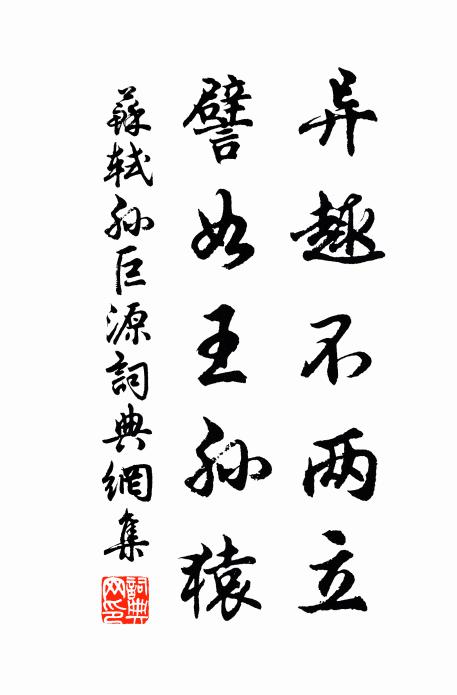 异趣不两立
譬如王孙猿
蘇軾孙巨源詞典網集
詞典网印